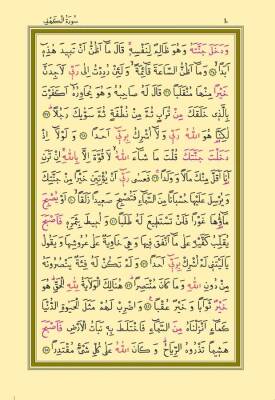 سُورَةُ الْكَهْفِ
وَدَخَلَ جَنَّتَهُ وَهُوَ ظَالِمٌ لِنَفْسِهِ ۚ قَالَ مَٓا اَظُنُّ اَنْ تَبِيدَ هٰذِهٓ
اَبَدًا ۙ وَمَٓا اَظُنُّ السَّاعَةَ قَٓائِمَةً ۙ وَلَئِنْ رُدِدْتُ اِلٰى رَبّٖي لَاَجِدَنَّ
خَيْرًا مِنْهَا مُنْقَلَبًا ۚ قَالَ لَهُ صَاحِبُهُ وَهُوَ يُحَاوِرُهُٓ اَكَفَرْتَ
بِالَّذٖي خَلَقَكَ مِنْ تُرَابٍ ثُمَّ مِنْ نُطْفَةٍ ثُمَّ سَوّٰيكَ رَجُلًا ۜ
لٰكِنَّا هُوَ اللّٰهُ رَبّٖي وَلَٓا اُشْرِكُ بِرَبّٖٓي اَحَدًا وَلَوْلَٓا اِذْ
دَخَلْتَ جَنَّتَكَ قُلْتَ مَا شَٓاءَ اللّٰهُ ۙ لَا قُوَّةَ اِلَّا بِاللّٰهِ ۚ اِنْ تَرَنِ
اَنَا۬ اَقَلَّ مِنْكَ مَالًا وَوَلَدًا ۚ فَعَسٰى رَبّٖٓي اَنْ يُؤْتِيَنِ خَيْرًا مِنْ جَنَّتِكَ
وَيُرْسِلَ عَلَيْهَا حُسْبَانًا مِنَ السَّمَٓاءِ فَتُصْبِحَ صَعِيدًا زَلَقًا ۙ اَوْ يُصْبِحَ
مَٓاؤُ۬هَا غَوْرًا فَلَنْ تَسْتَطِيعَ لَهُ طَلَبًا وَاُحِيطَ بِثَمَرِهٖ فَاَصْبَحَ
يُقَلِّبُ كَفَّيْهِ عَلٰى مَٓا اَنْفَقَ فِيهَا وَهِيَ خَاوِيَةٌ عَلٰى عُرُوشِهَا وَيَقُولُ
يَا لَيْتَنٖي لَمْ اُشْرِكْ بِرَبّٖٓي اَحَدًا وَلَمْ تَكُنْ لَهُ فِئَةٌ يَنْصُرُونَهُ
مِنْ دُونِ اللّٰهِ وَمَا كَانَ مُنْتَصِرًا ۜ هُنَالِكَ الْوَلَايَةُ لِلّٰهِ الْحَقِّ ۜ هُوَ
خَيْرٌ ثَوَابًا وَخَيْرٌ عُقْبًا ۟ وَاضْرِبْ لَهُمْ مَثَلَ الْحَيٰوةِ الدُّنْيَا
كَمَٓاءٍ اَنْزَلْنَاهُ مِنَ السَّمَٓاءِ فَاخْتَلَطَ بِهٖ نَبَاتُ الْاَرْضِ فَاَصْبَحَ
هَشِيمًا تَذْرُوهُ الرِّيَاحُ ۜ وَكَانَ اللّٰهُ عَلٰى كُلِّ شَيْءٍ مُقْتَدِرًا